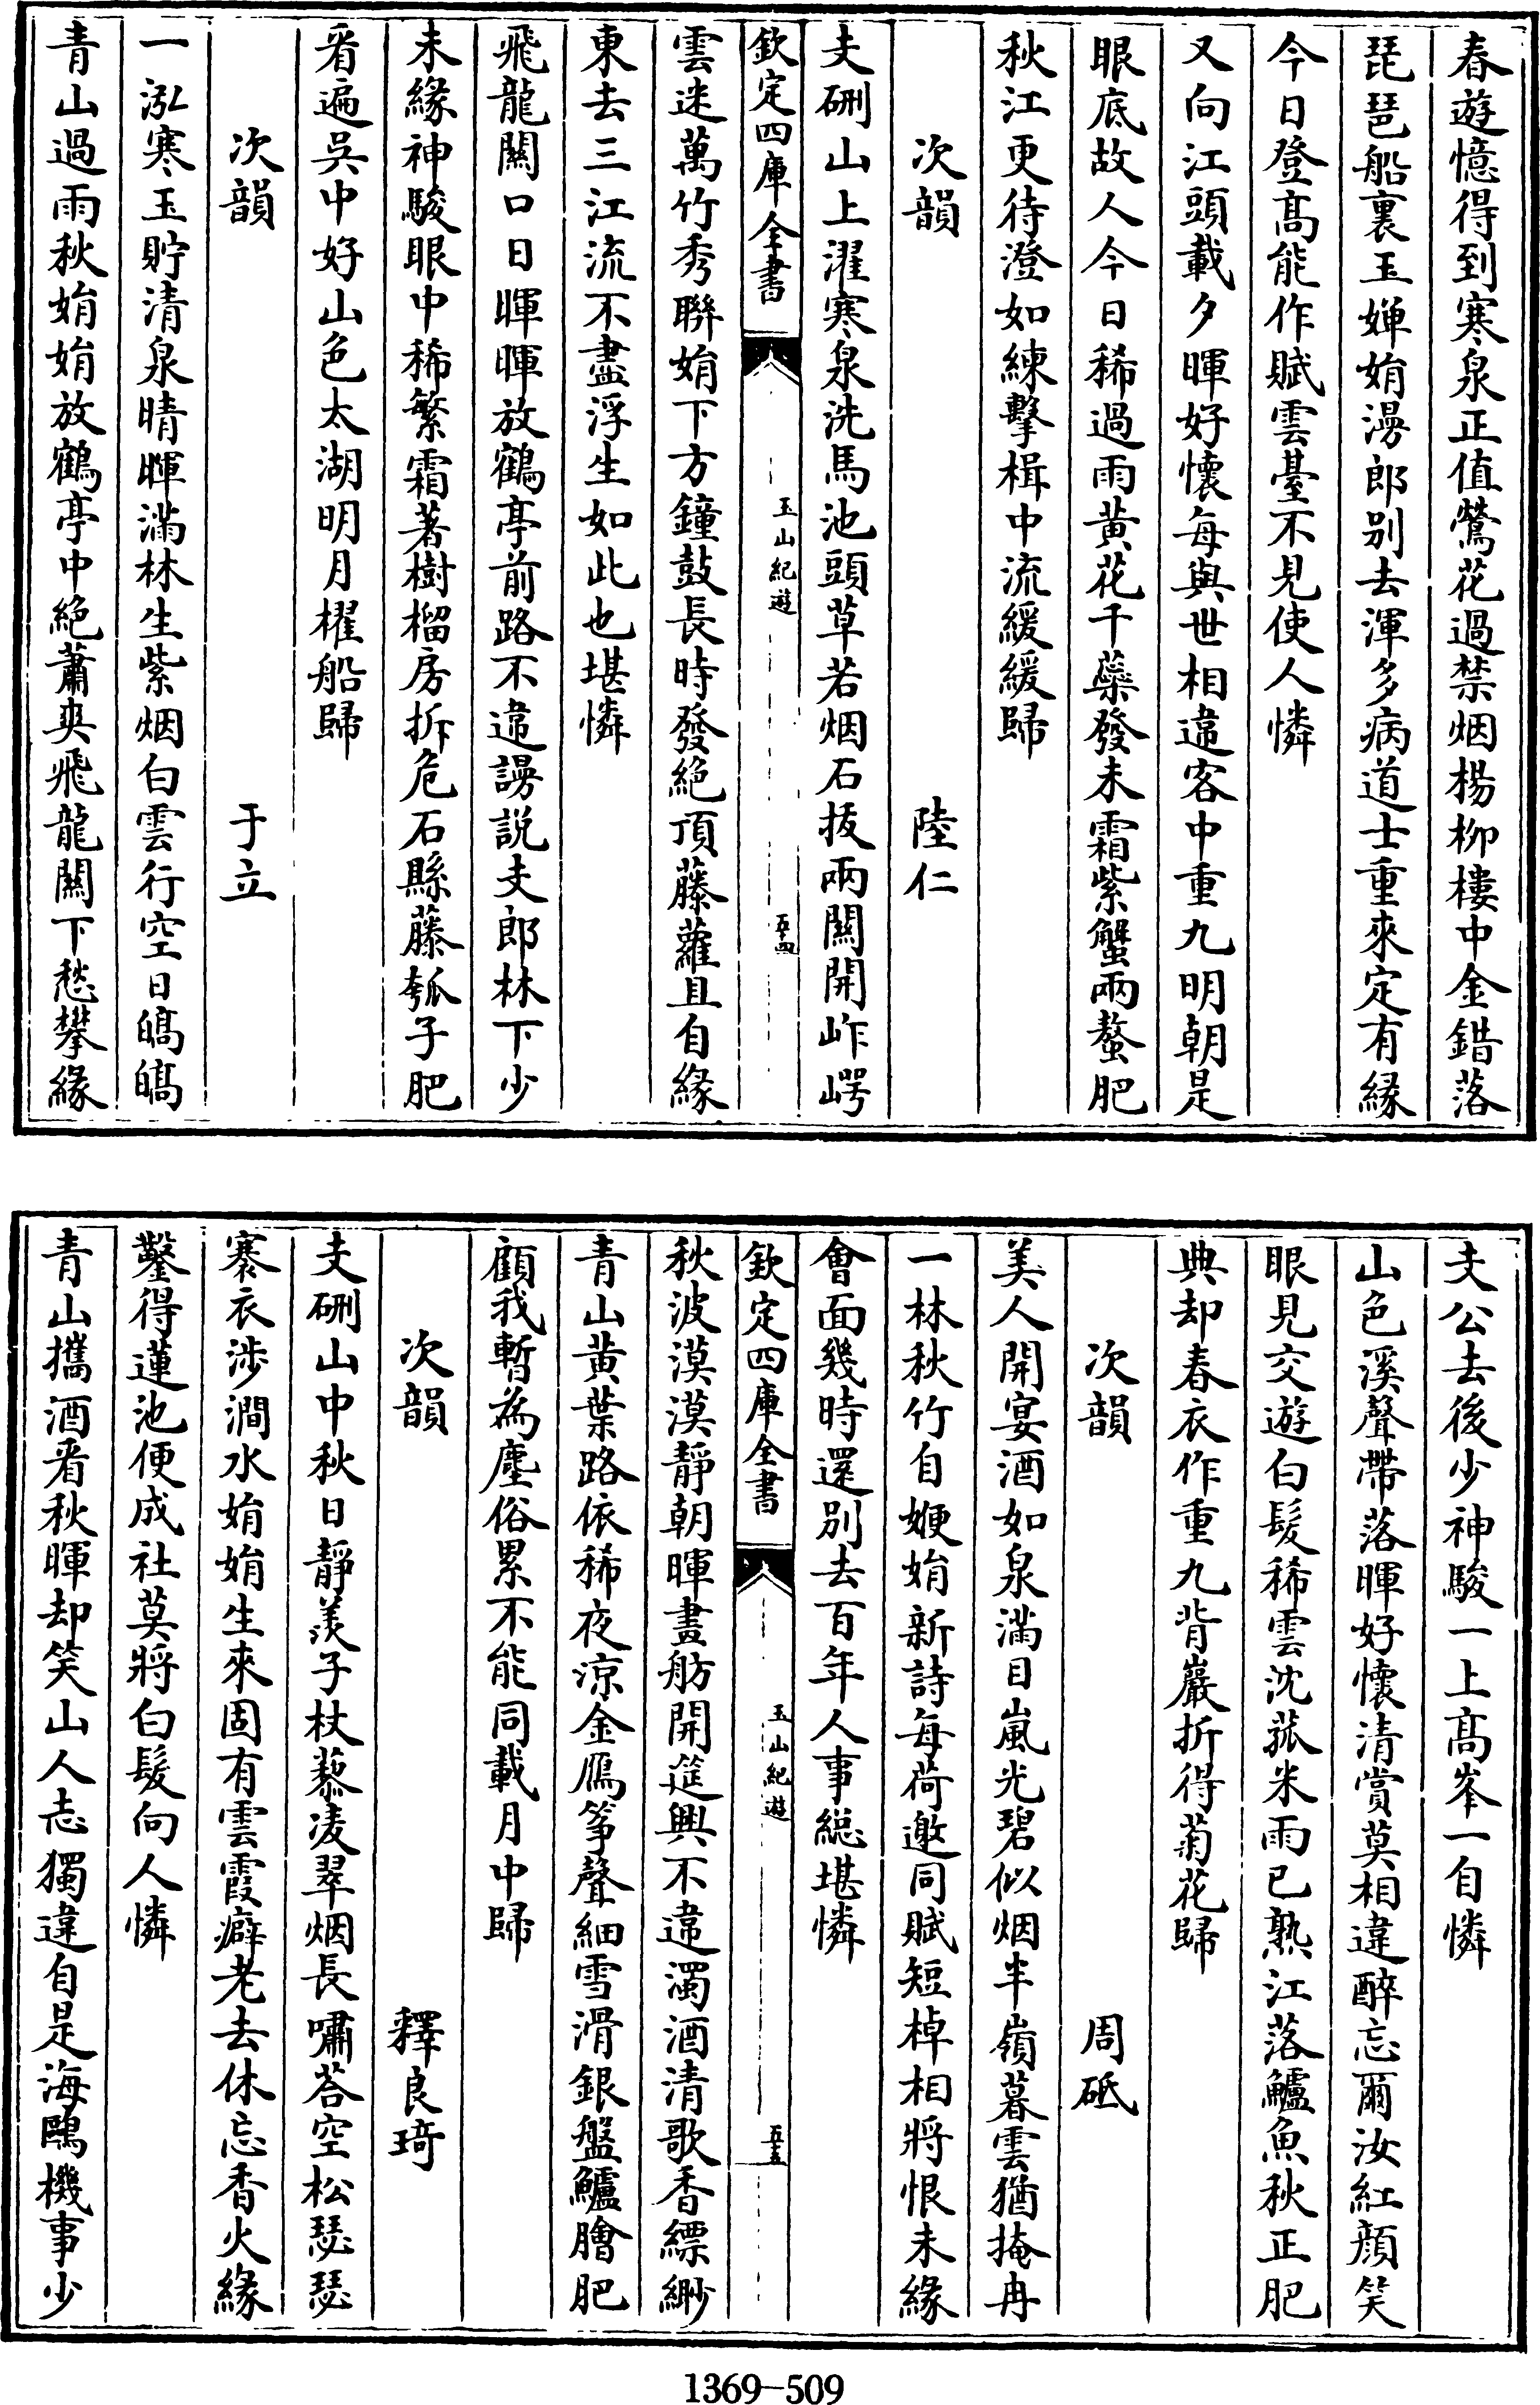 春遊憶得到寒泉正值鶯花過禁烟楊栁樓中金錯落
琵琶船裏玉嬋娟漫郎别去渾多病道士重來定有緣
今日登髙能作賦雲臺不見使人憐
又向江頭載夕暉好懷每與世相違客中重九明朝是
眼底故人今日稀過雨黄花千蘂發未霜紫蟹兩螯肥
秋江更待澄如練擊楫中流緩緩歸
次韻 陸仁
支硎山上濯寒泉洗馬池頭草若烟石扳兩闗開岞崿
欽定四庫全書 玉山紀遊 五十四
雲迷萬竹秀聯娟下方鐘鼓長時發絶頂藤蘿且自緣
東去三江流不盡浮生如此也堪憐
飛龍闗口日暉暉放鶴亭前路不違謾説支郎林下少
未緣神駿眼中稀繁霜著樹榴房拆危石縣藤瓠子肥
看遍吳中好山色太湖明月櫂船歸
次韻 于立
一泓寒玉貯清泉晴暉滿林生紫烟白雲行空日皜皜
青山過雨秋娟娟放鶴亭中絶蕭爽飛龍闗下愁攀緣
支公去後少神駿一上髙峯一自憐
山色溪聲帶落暉好懷清賞莫相違醉忘爾汝紅顔笑
眼見交遊白髪稀雲沈菰米雨已熟江落鱸魚秋正肥
典却春衣作重九背巖折得菊花歸
次韻 周砥
美人開宴酒如泉滿目嵐光碧似烟半嶺暮雲猶掩冉
一林秋竹自㛹娟新詩每荷邀同賦短棹相將恨未緣
會面幾時還别去百年人事緫堪憐
欽定四庫全書 玉山紀遊 五十五
秋波漠漠靜朝暉畫舫開筵興不違濁酒清歌香縹緲
青山黄葉路依稀夜凉金鴈箏聲細雪滑銀盤鱸膾肥
顧我暫為塵俗累不能同載月中歸
次韻 釋良琦
支硎山中秋日靜羨子杖藜凌翠烟長嘯荅空松瑟瑟
褰衣涉澗水娟娟生來固有雲霞癖老去休忘香火緣
鑿得蓮池便成社莫將白髪向人憐
青山攜酒看秋暉却笑山人志獨違自是海鷗機事少
1369-509